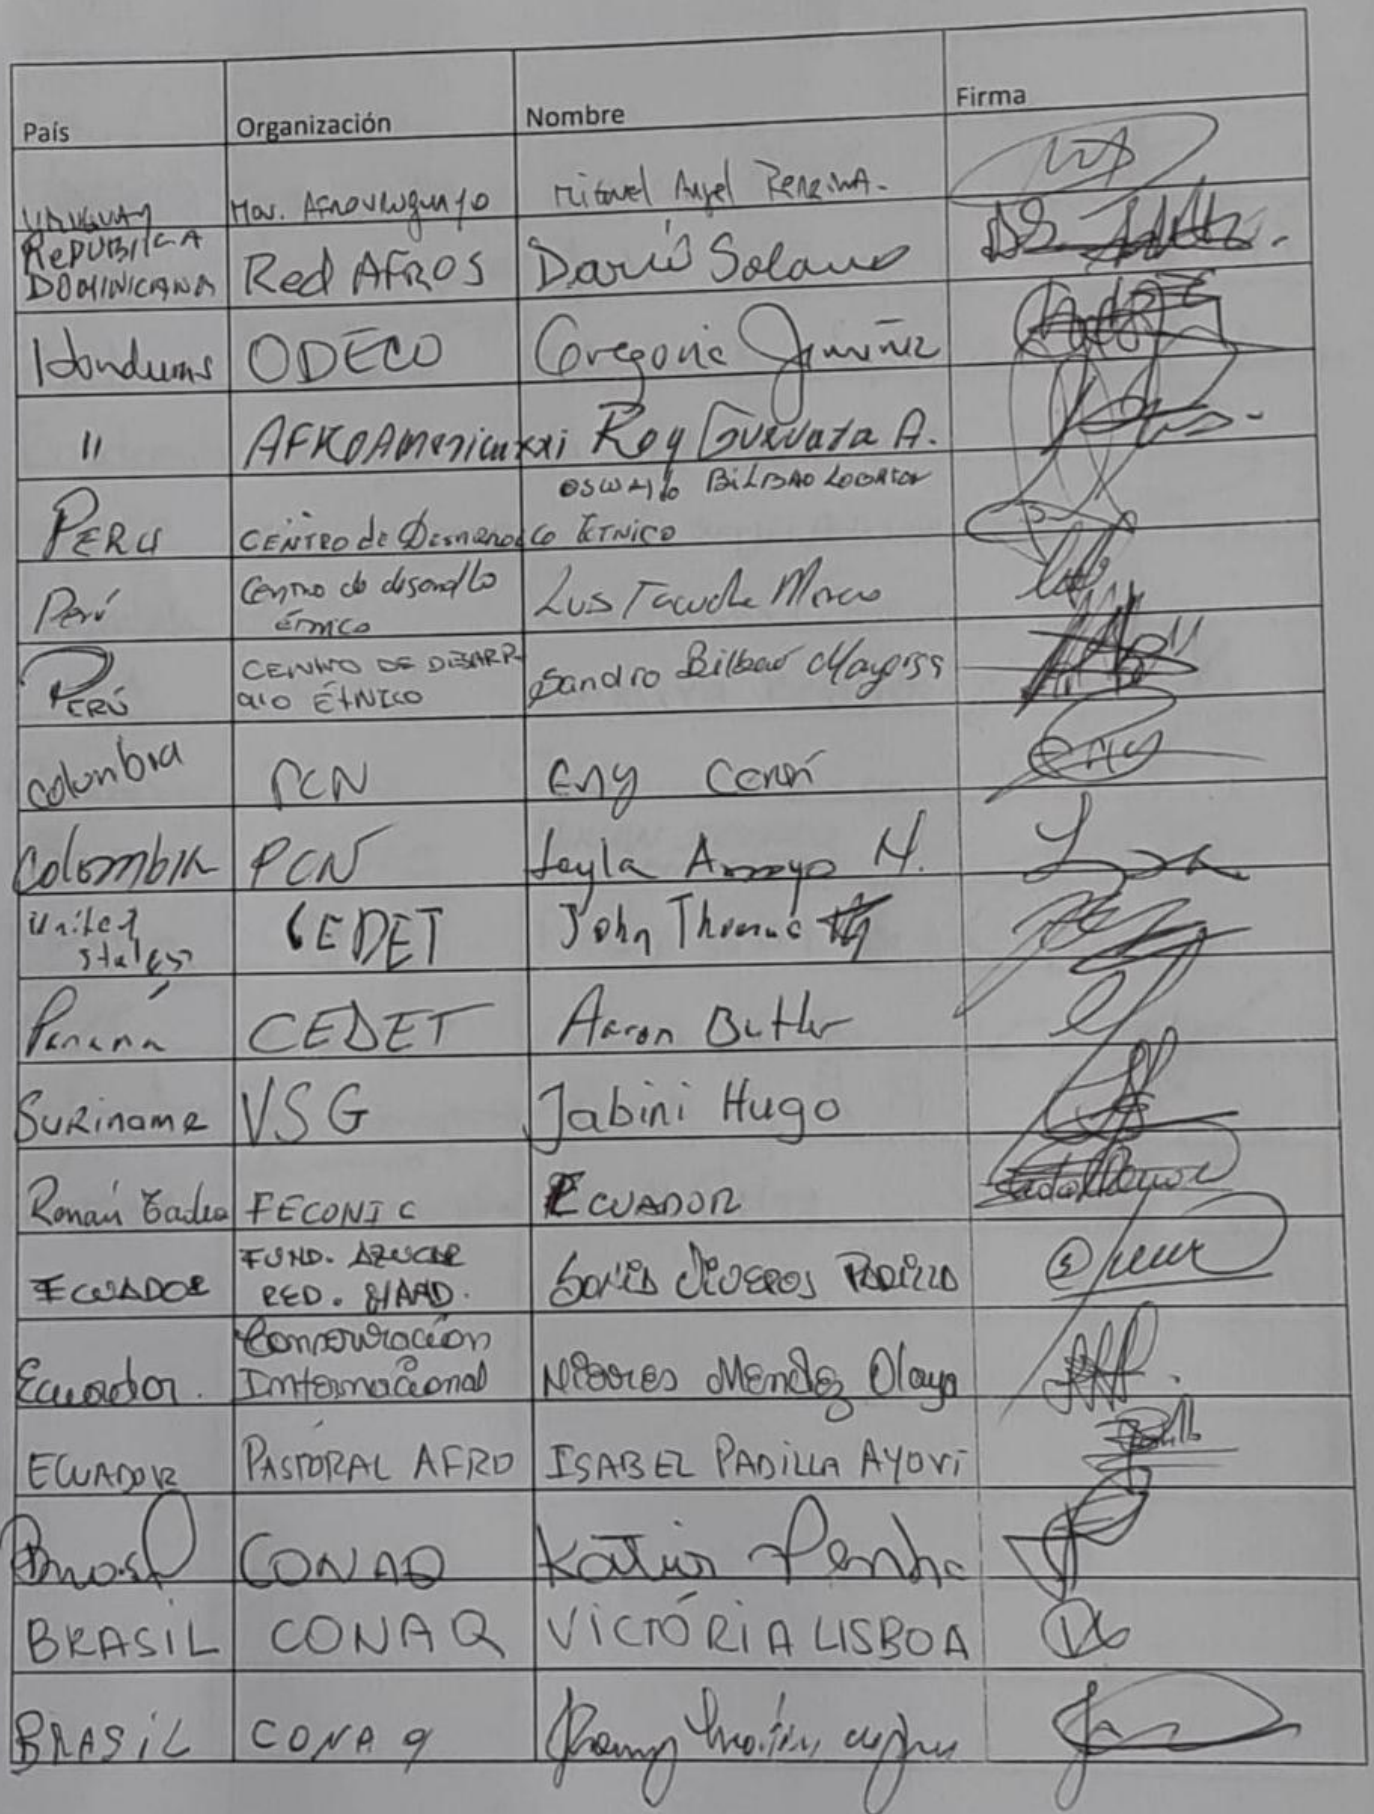 País Organización Nombre Firma
URUGUAY Mov. AFROURUGUAYO Miguel Angel Pereira.
REPUBLICA
DOMINICANA Red AFROS Darío Solano
Honduras ODECO Gregorio Jiménez
11 AFROAmericaxxi Roy Guevara A.
OSWALDO BILBAO LOBATON
PERU CENTRO de Desarrollo ETNICO
Perú Centro de desarrollo
étnico Luis
PERÚ CENTRO DE DESARR-
OLLO ÉTNICO Sandro Bilbao
Colombia PCN Eny
Colombia PCN Leyla Arroyo M.
United
States CEDET John Thomas III
Panamá CEDET Aaron Butler
SURiname VSG Jabini Hugo
Román FECONIC ECUADOR
ECUADOR FUND. AZUCAR
RED. Sonia Viveros PADILLA
Ecuador. Conservación
Internacional Mendez Olaya
ECUADOR PASTORAL AFRO ISABEL PADILLA AYOVI
Brasil CONAQ Katia Penha
BRASIL CONAQ VICTÓRIA LISBOA
BRASIL CONAq